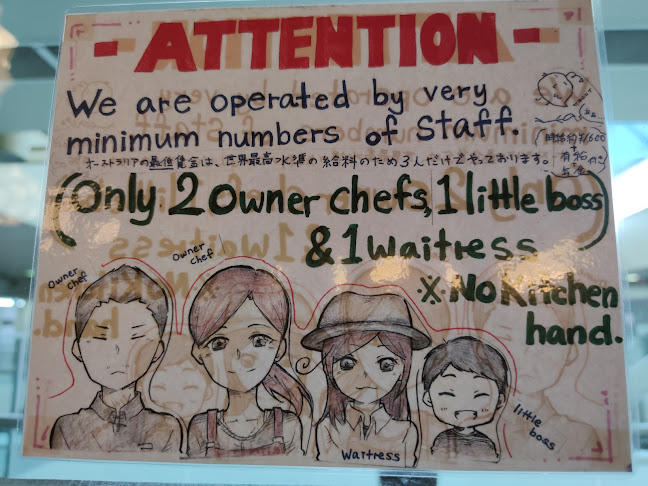 - ATTENTION -
We are operated by very
minimum numbers of Staff.
オーストラリアの最低賃金は、世界最高水準の給料のため3人だけでやっております。
(Only 2 owner chefs, 1 little boss)
& 1 waitress
※ No Kitchen
hand.
Owner
chef
Owner
chef
Waitress
little
boss